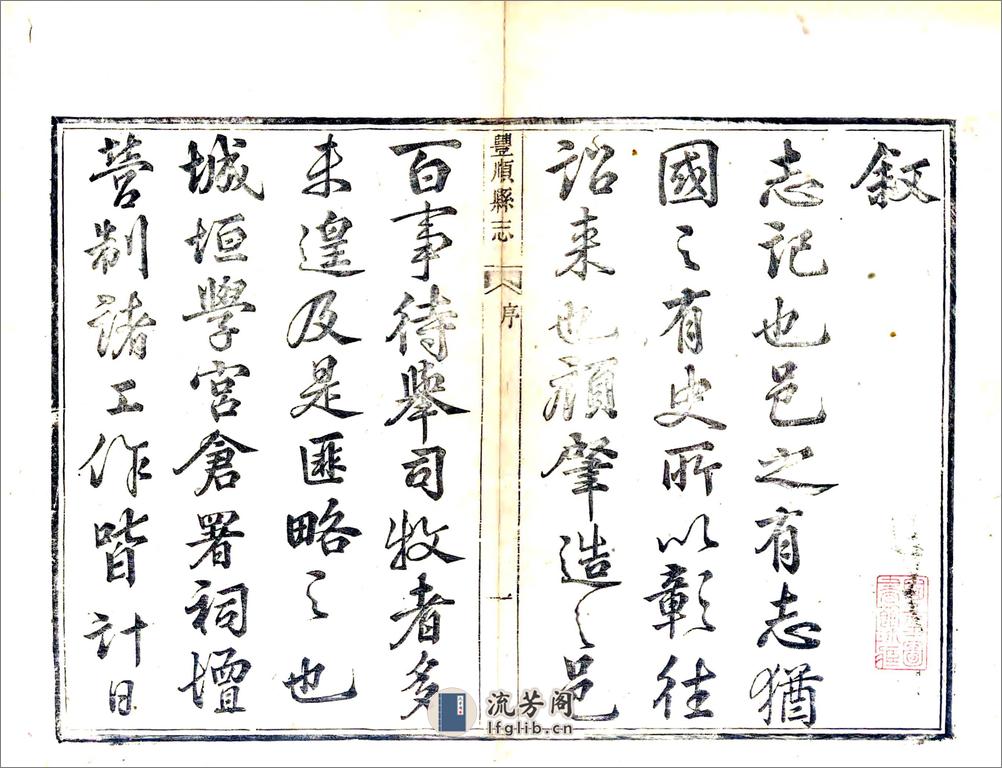 敘
志記也邑之有志猶
國之有史所以彰往
詔来也顧肇造之邑
豐順縣志
序
一
百事待舉司牧者多
未遑及是匪略之也
城垣學宮倉署祠壇
营制諸工作皆計日
流芳阁
lfglib.cn